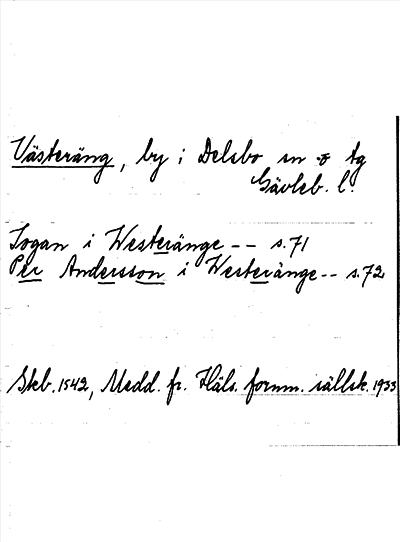 Västeräng, by i Delsbo sn o tg
Gävleb. l.
Jogan i Westeränge -- s.71
Per Andersson i Westeränge -- s.72
Skb. 1542, Medd. fr. Häls. fornm. sällsk. 1933